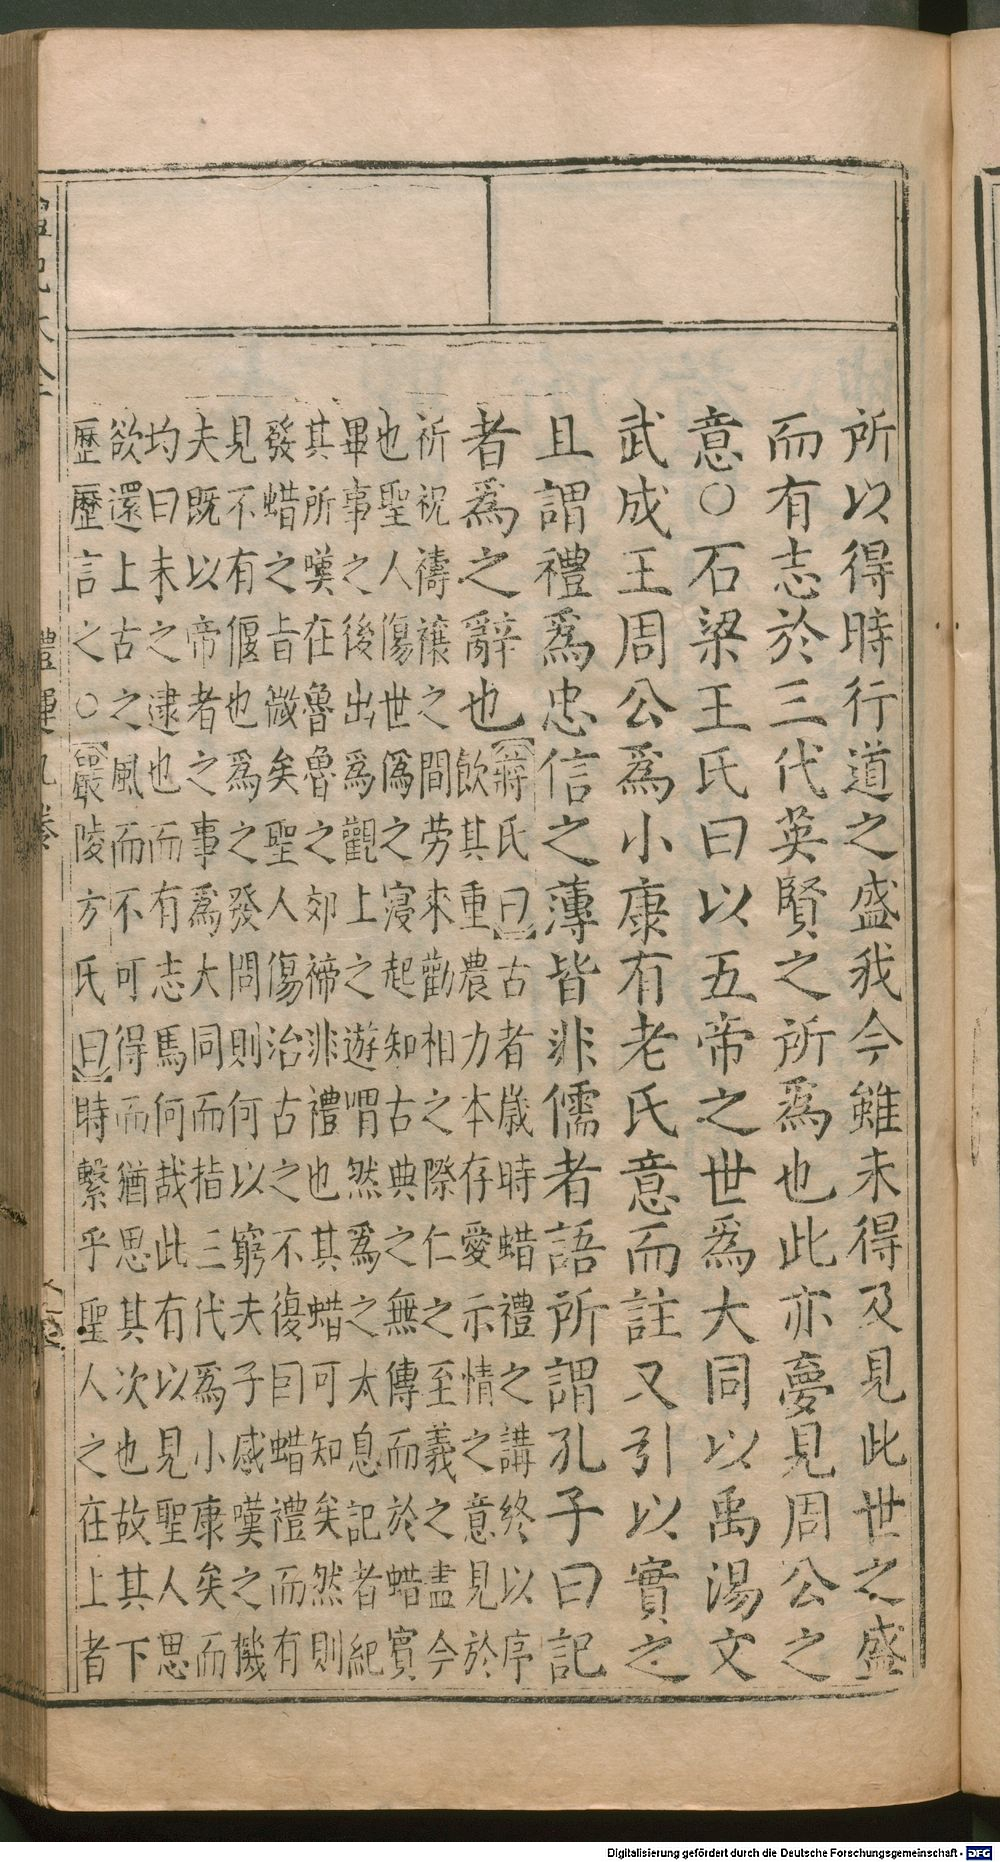 所以得時行道之盛我今雖未得及見此世之盛
而有志於三代英賢之所爲也此亦夢見周公之
意○石梁王氏曰以五帝之世爲大同以禹湯文
武成王周公爲小康有老氏意而註又引以實之
且謂禮爲忠信之薄皆非儒者語所謂孔子曰記
者爲之辭也
蔣氏曰古者歲時蜡禮之講終以序
飲其重農力本存愛示情之意見於
祈祝禱禳之間勞來勸相之際仁之至義之盡今
也聖人傷世僞之寖起知古典之無傳而於蜡賓
畢事之後出爲觀上之遊喟然爲之太息記者紀
其所嘆在魯魯之郊禘非禮也其蜡可知矣然則
發蜡之旨微矣聖人傷治古之不復囙蜡禮而有
見不有偃也爲之發問則何以窮夫子感嘆之機
夫既以帝者之事爲大同而指三代爲小康矣而
均曰未之逮也而有志馬何哉此有以見聖人思
欲還上古之風而不可得而猶思其次也故其下
歷歷言之○嚴陵方氏曰時繫乎聖人之在上者
禮運九卷
Digitalisierung gefördert durch die Deutsche Forschungsgemeinschaft - DFG